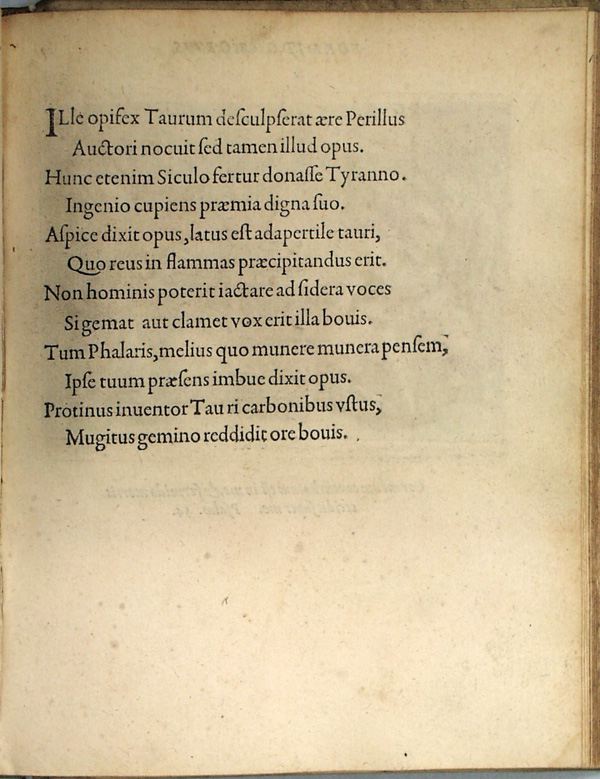 ILle opifex Taurum deſculpſerat ære Perillus
Auctori nocuit ſed tamen illud opus.
Hunc etenim Siculo fertur donaſſe Tyranno.
Ingenio cupiens præmia digna ſuo.
Aſpice dixit opus, latus eſt adapertile tauri,
Quo reus in flammas præcipitandus erit.
Non hominis poterit iactare ad ſidera voces
Si gemat aut clamet vox erit illa bouis.
Tum Phalaris, melius quo munere munera penſem,
Ipſe tuum præſens imbue dixit opus.
Protinus inuentor Tau ri carbonibus vſtus,
Mugitus gemino reddidit ore bouis.